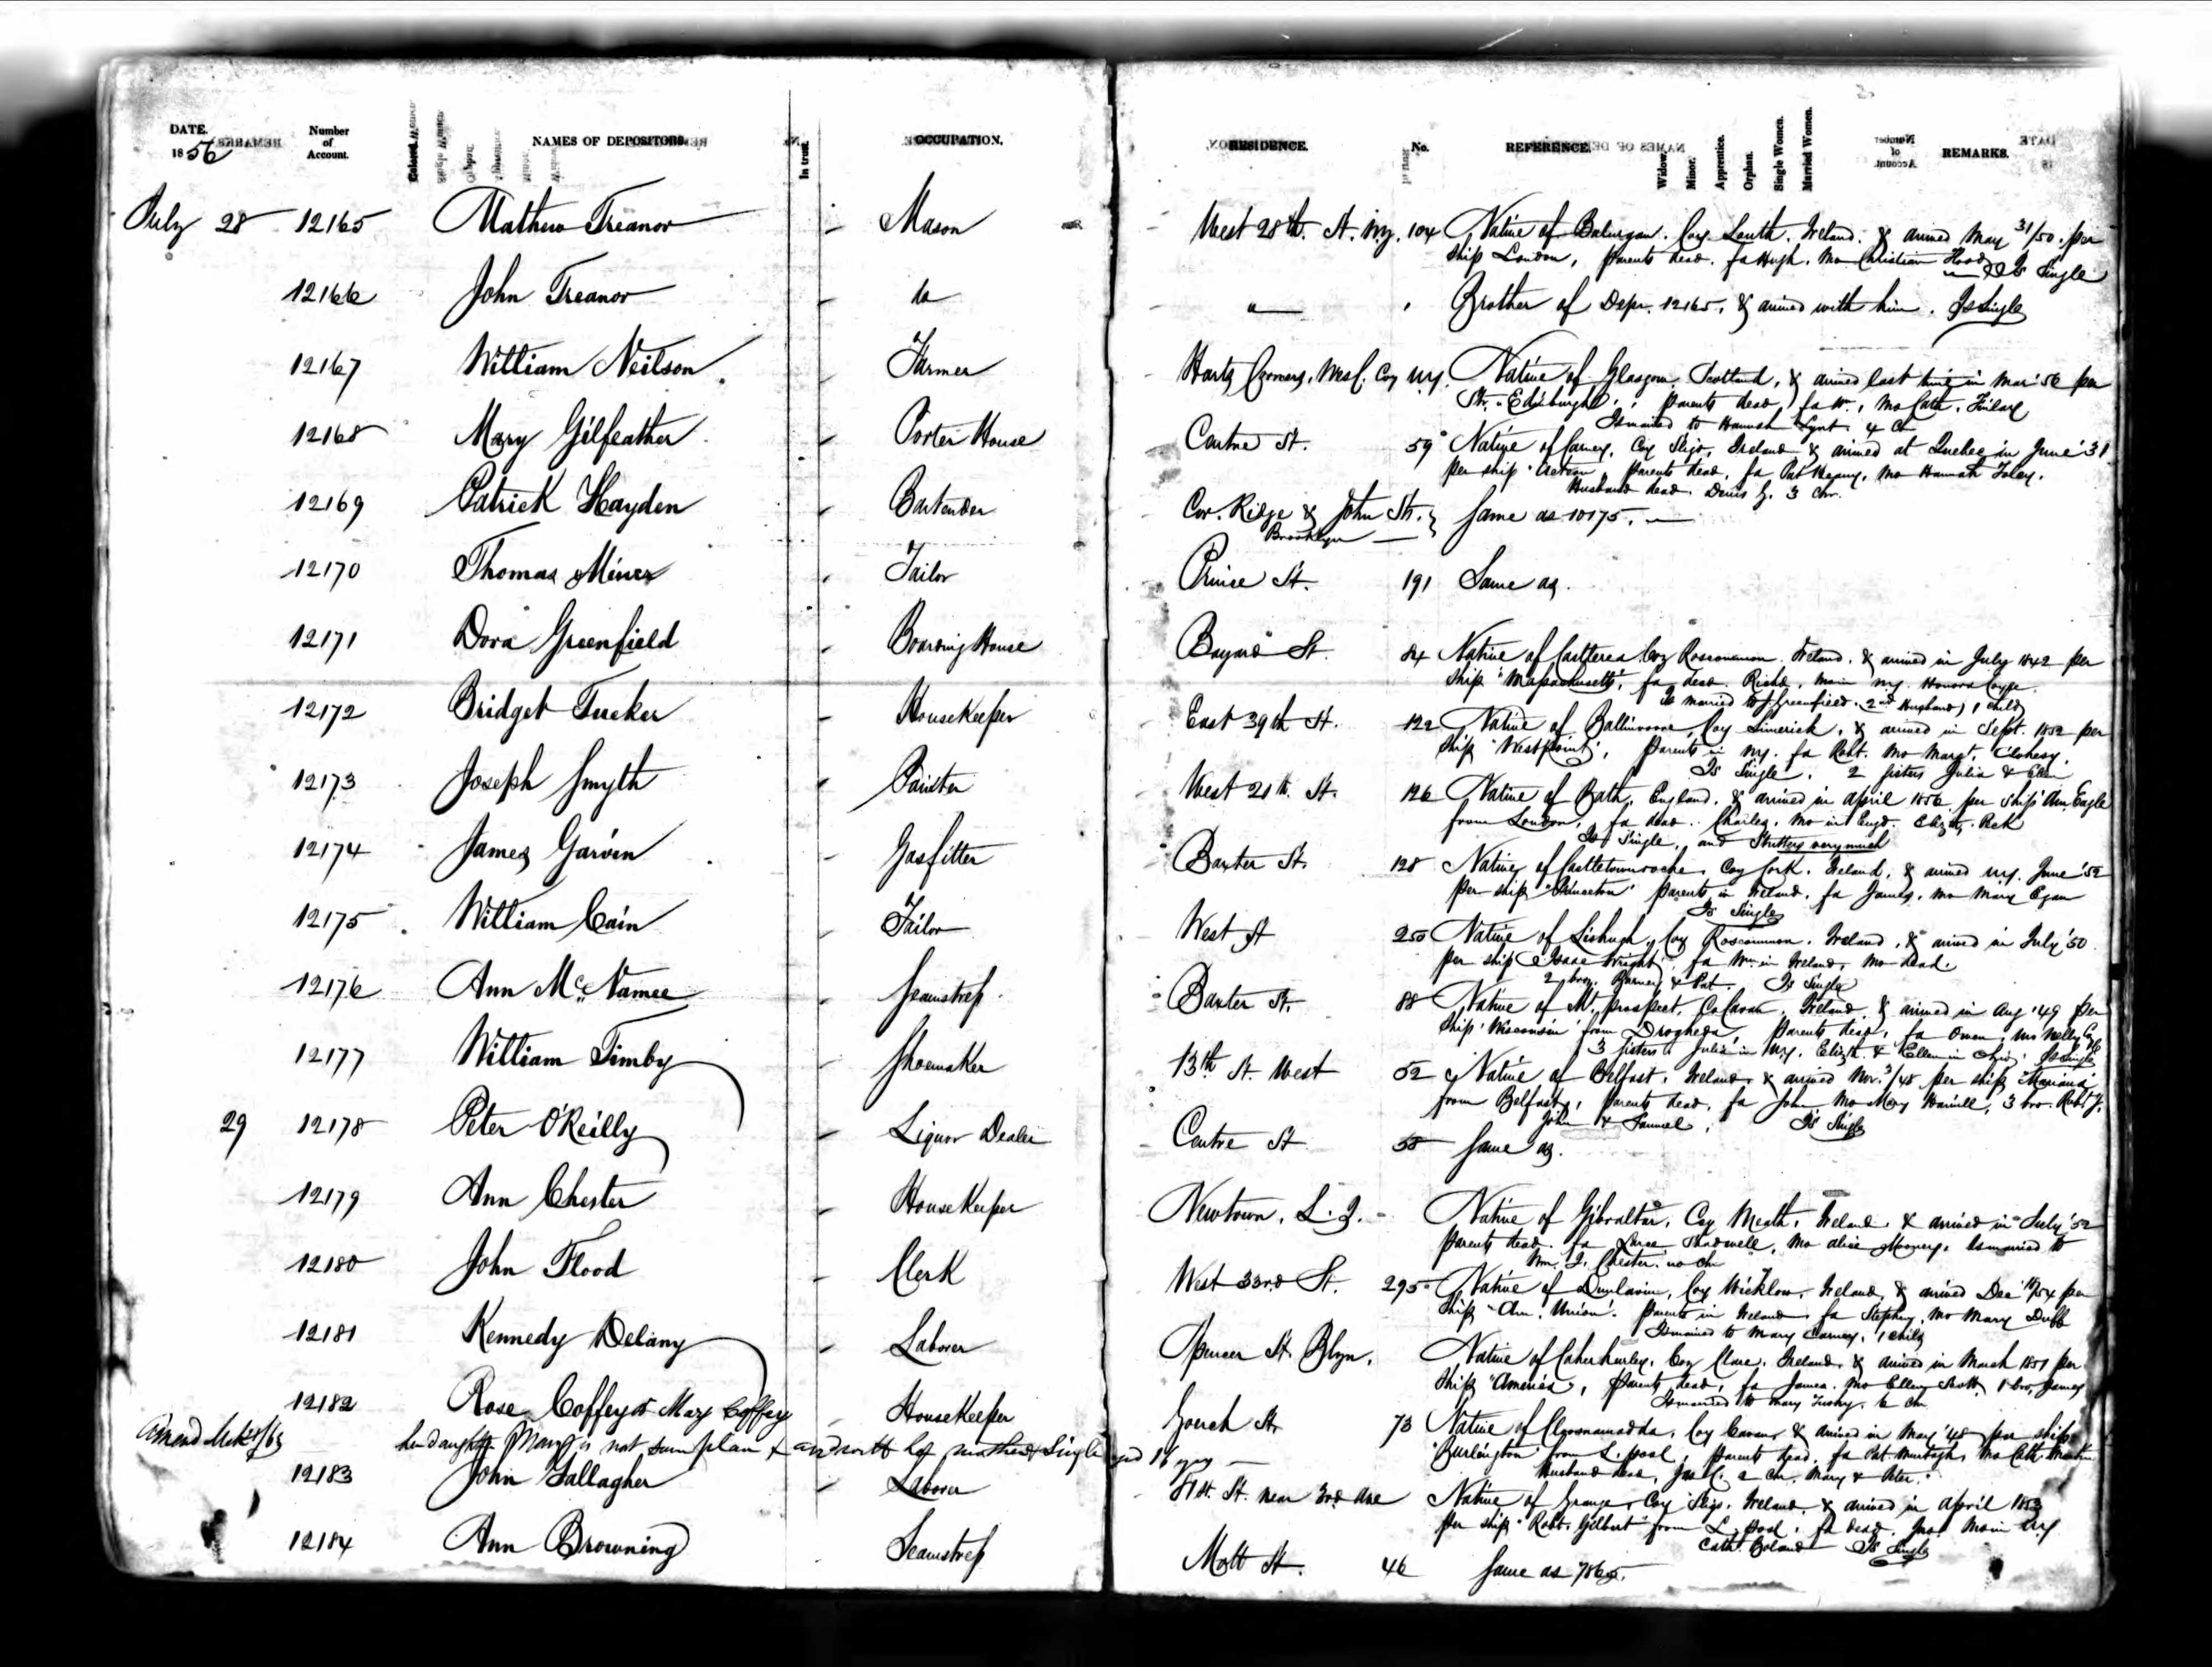 DATE. 1856
Number of Account.
NAMES OF DEPOSITORS.
In trust.
OCCUPATION.
RESIDENCE.
No.
REFERENCE.
Widow. Minor. Apprentice. Orphan. Single Women. Married Women.
REMARKS.
July 28 12165 Mathew Treanor Mason West 28th. St. N.Y. 104 Native of Coy. Louth. Ireland. & arrived May 31/50. per
Ship London, parents dead. fa Hugh. Mo Christian Flood & Is Single
12166 John Treanor do " Brother of Depr. 12165, & arrived with him. Is Single
12167 William Neilson Farmer Harts Corners, Wes. Coy N.Y. Native of Glasgow. Scotland, & arrived last time in Mar '56 per
Str. "Edinburgh", parents dead, fa Wm., Mo Cath.
Is married to Hannah 4 Ch
12168 Mary Gilfeather Porter House Centre St. 59 Native of Carney, Coy Sligo, Ireland & arrived at Quebec in June '31
per ship parents dead, fa Pat Mo Hannah Foley.
Husband dead. Denis G. 3 Chr.
12169 Patrick Hayden Bartender Cor. Ridge & John Sts. Same as 10175.
Brooklyn
12170 Thomas Miner Tailor Prince St. 191 Same as.
12171 Dora Greenfield Boarding House Bayard St. 84 Native of Castlerea Coy Roscommon. Ireland. & arrived in July 1842 per
Ship "Massachusetts", fa dead. Richd, Mo in N.Y. Honora
Is married to J Greenfield. (2nd Husband) 1 child
12172 Bridget Tucker HouseKeeper East 39th St. 122 Native of Coy Limerick, & arrived in Sept. 1852 per
Ship "Westpoint", parents in N.Y. fa Robt. Mo Margt. Clohesy.
Is Single. 2 Sisters Julia & Ellen
12173 Joseph Smyth Painter West 21th. St. 126 Native of Bath, England, & arrived in April 1856 per Ship Am. Eagle
from London, fa dead. Charles, Mo in Engd. Elizth.
Is Single, and Stutters very much
12174 James Garvin Gasfitter Baxter St. 128 Native of Castletownroche. Coy Cork. Ireland, & arrived N.Y. June '52
per ship "Princeton" parents in Ireland. fa James, Mo Mary Egan
Is Single
12175 William Cain Tailor West St 250 Native of Coy Roscommon. Ireland, & arrived in July '50
per ship "Isaac Wright", fa Wm in Ireland, Mo dead.
2 bros. Barney & Pat. Is Single
12176 Ann McNamee Seamstress Baxter St. 88 Native of Mt. prospect, Co Cavan, Ireland, & arrived in Aug '49 per
Ship 'Wisconsin' from Drogheda, Parents dead, fa Owen, Mo Nelly
3 Sisters Julia in N.Y. Elizth. & Ellen in Is Single
12177 William Timby Shoemaker 13th St. West 52 Native of Belfast, Ireland, & arrived Nov. 3/48 per ship "Mariana"
from Belfast, Parents dead, fa John Mo Mary 3 bro. Robt
John & Samuel, Is Single
29 12178 Peter O'Reilly Liquor Dealer Centre St 58 Same as.
12179 Ann Chester HouseKeeper Newtown, L.I. Native of Gibraltar, Coy Meath, Ireland, & arrived in July '52
parents dead. fa Mo Alice Is married to
Wm. J. Chester. no Ch
12180 John Flood Clerk West 33rd St. 295 Native of Dunlavin, Coy Wicklow, Ireland, & arrived Dec /54 per
Ship "Am. Union". parents in Ireland, fa Stephen, Mo Mary Duff
Is married to Mary Carney, 1 child
12181 Kennedy Delany Laborer Spencer St. Blyn. Native of Caherhurley, Coy Clare. Ireland, & arrived in March 1851 per
Ship "America", parents dead, fa James. Mo Ellen Scott, 1 bro. James
Is married to Mary 6 Ch
12182 Rose Coffey or Mary Coffey HouseKeeper Goerck St. 73 Native of Coy Cavan, & arrived in May '48 per ship
"Burlington" from L.pool, Parents dead, fa Pat. Murtagh, Mo Cath Martin
Husband dead, Jas C. 2 Ch. Mary & Peter.
her daughter Mary is not mother & Single aged 16 yrs
12183 John Gallagher Laborer 81st. St. near 3rd Ave Native of Grange, Coy Sligo. Ireland & arrived in April 1853
per ship "Robt. Gilbert" from L.pool, fa dead. Jno. Mo in N.Y.
Cath. Boland Is Single
12184 Ann Browning Seamstress Mott St. 46 Same as 7865.